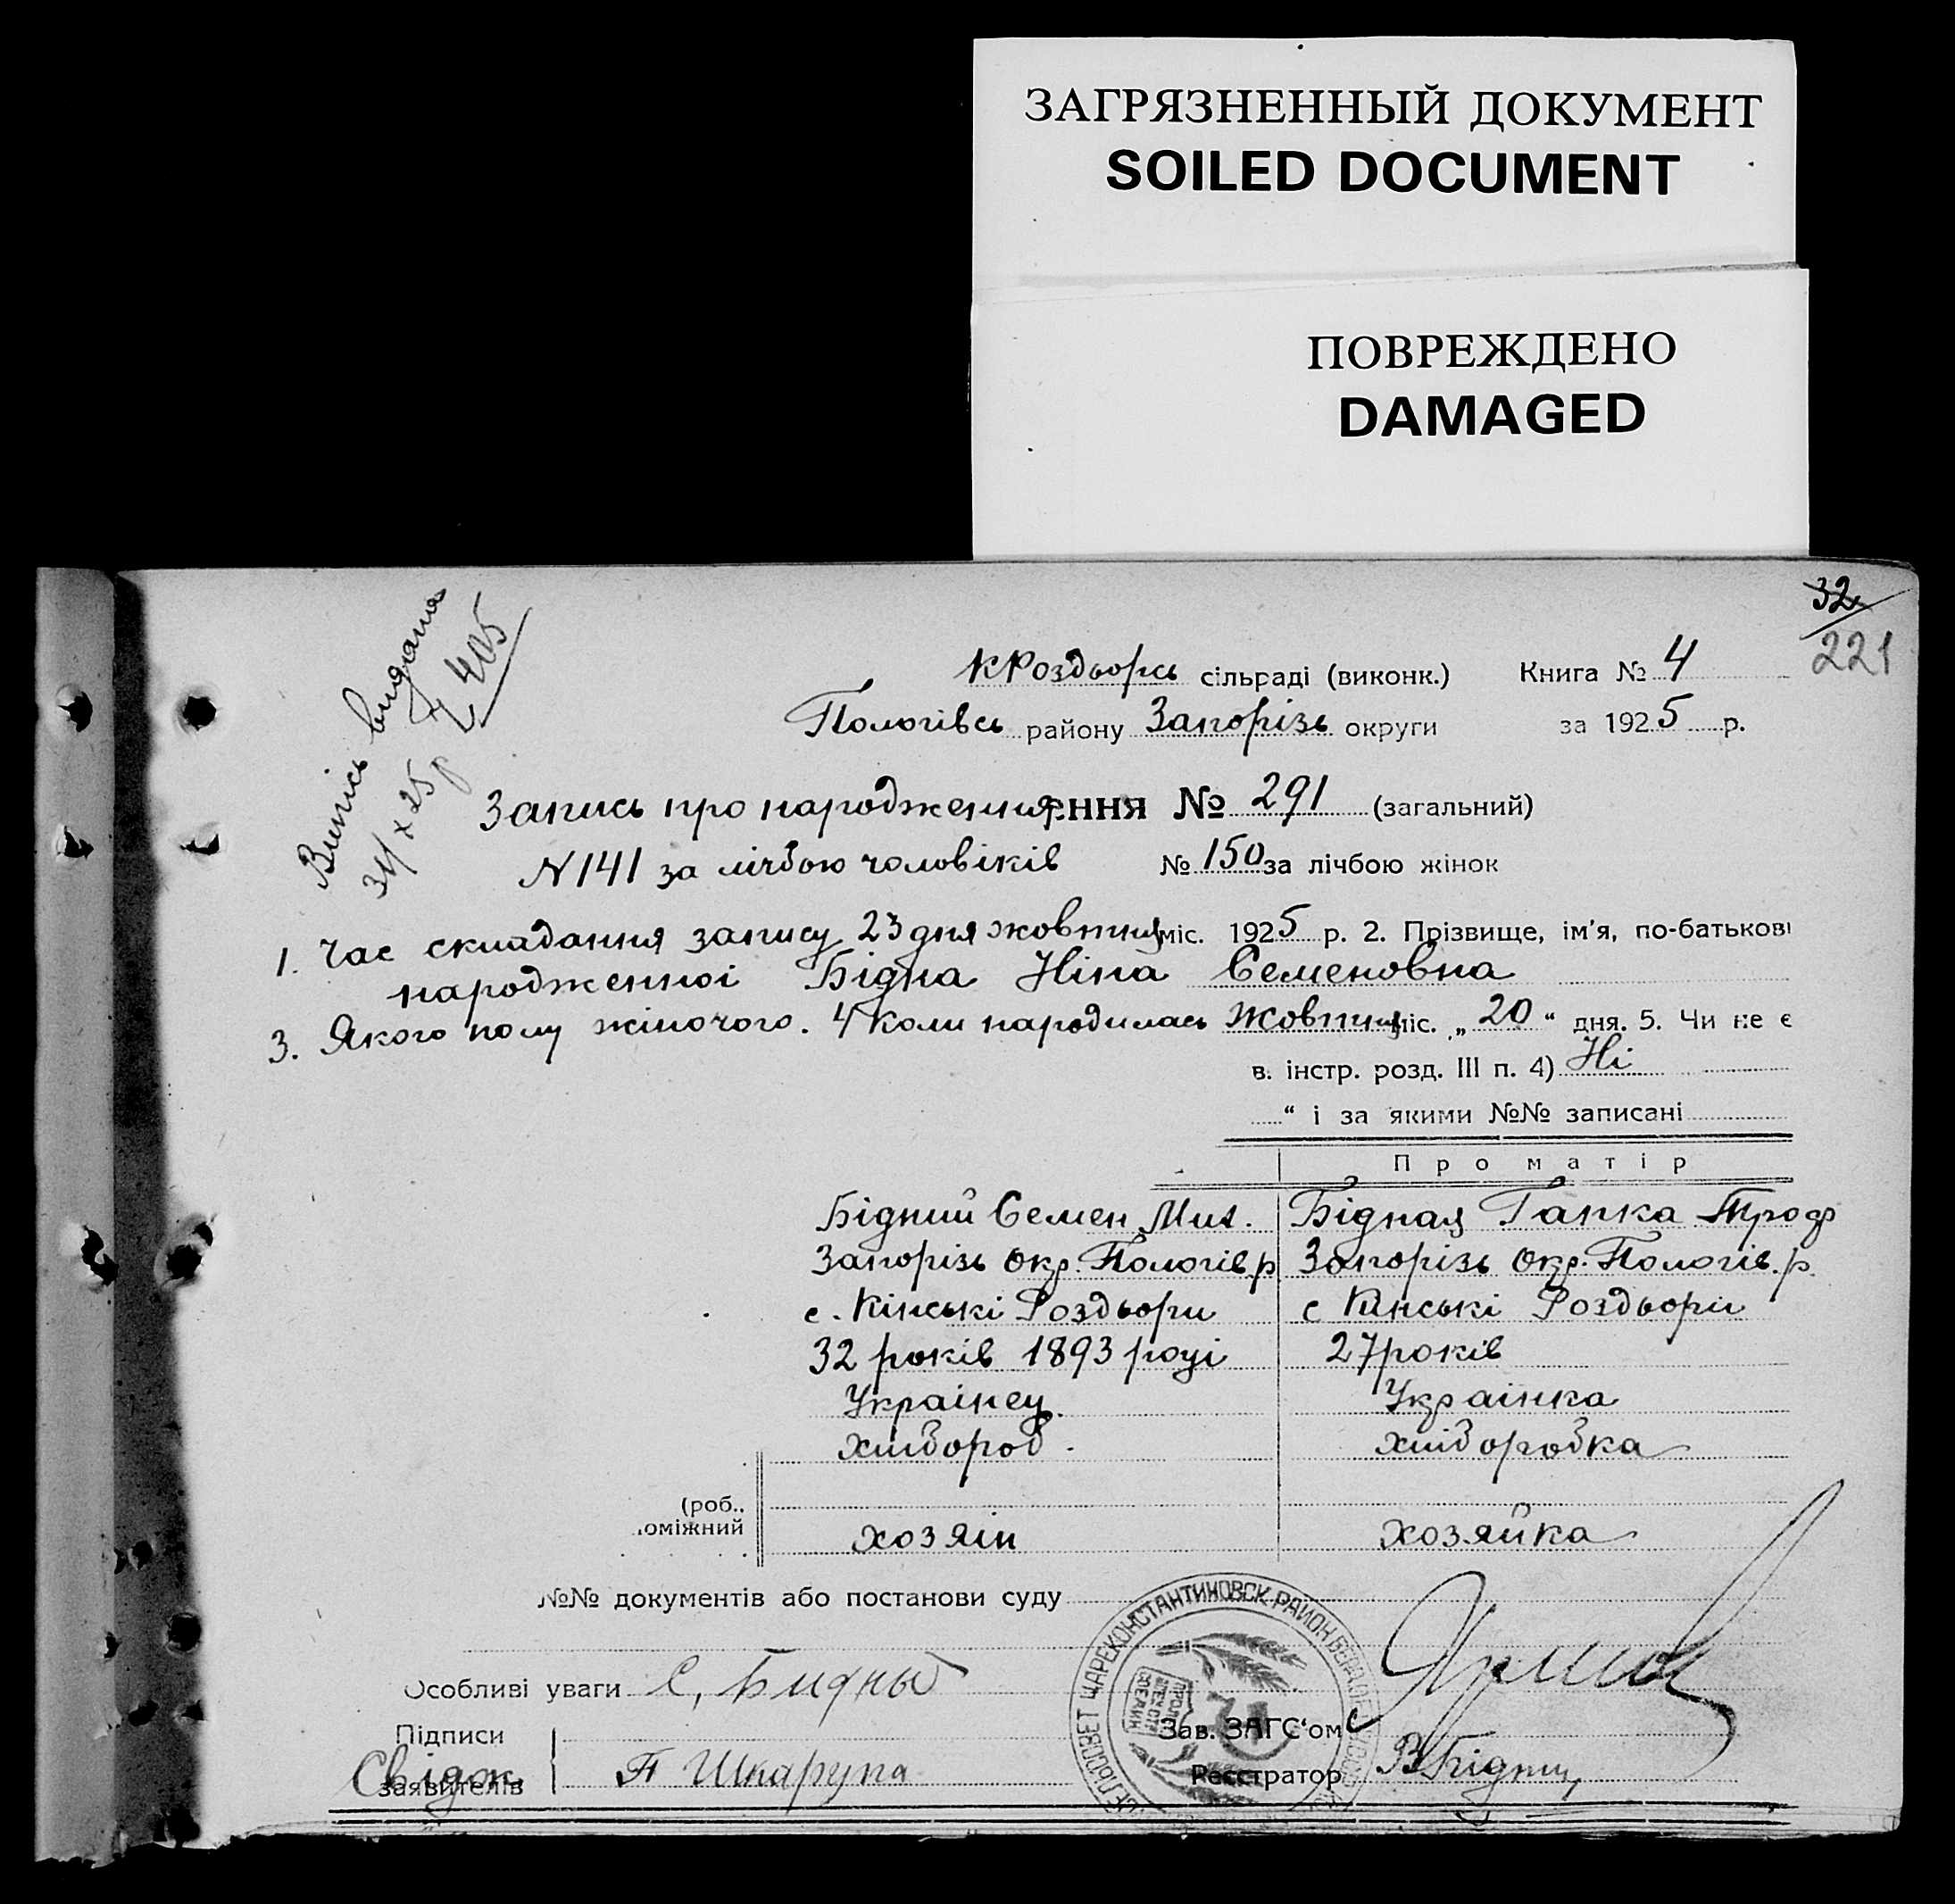 ЗАГРЯЗНЕННЫЙ ДОКУМЕНТ
SOILED DOCUMENT
ПОВРЕЖДЕНО
DAMAGED
32
221
Випись видана
31/X 25р 405
КРоздворсь сільраді (виконк.) Книга № 4
Пологівсь району Запорізь округи за 1925 р.
Запись про народження ення № 291 (загальний)
N 141 за лічбою чоловіків № 150 за лічбою жінок
1. Час складання запису 23 дня жовтня міс. 1925 р. 2. Прізвище, ім'я, по-батькові
народженної Бідна Ніна Семеновна
3. Якого полу жіночого. 4 Коли народилась Жовтня міс. „ 20 “ дня. 5. Чи не є
в. інстр. розд. III п. 4) Ні
“ і за якими №№ записані
Про матір
Бідний Семен Мих. Бідная Ганка Троф
Запорізь окр. Пологів. р Запорізь Окр. Пологів. р.
с. Кінські Роздвори с Кінські Роздвори
32 років 1893 році 27 років
Українец. Українка
хлібороб. хліборобка
(роб.,
оміжний хозяін хозяйка
№№ документів або постанови суду
Особливі уваги С, Бидный
Підписи Зав. ЗАГС'ом
Свідки
заявителів П Шкарупа Реєстратор В Бідний
СЕЛЬСОВЕТ ЦАРЕКОНСТАНТИНОВСК РАЙОН